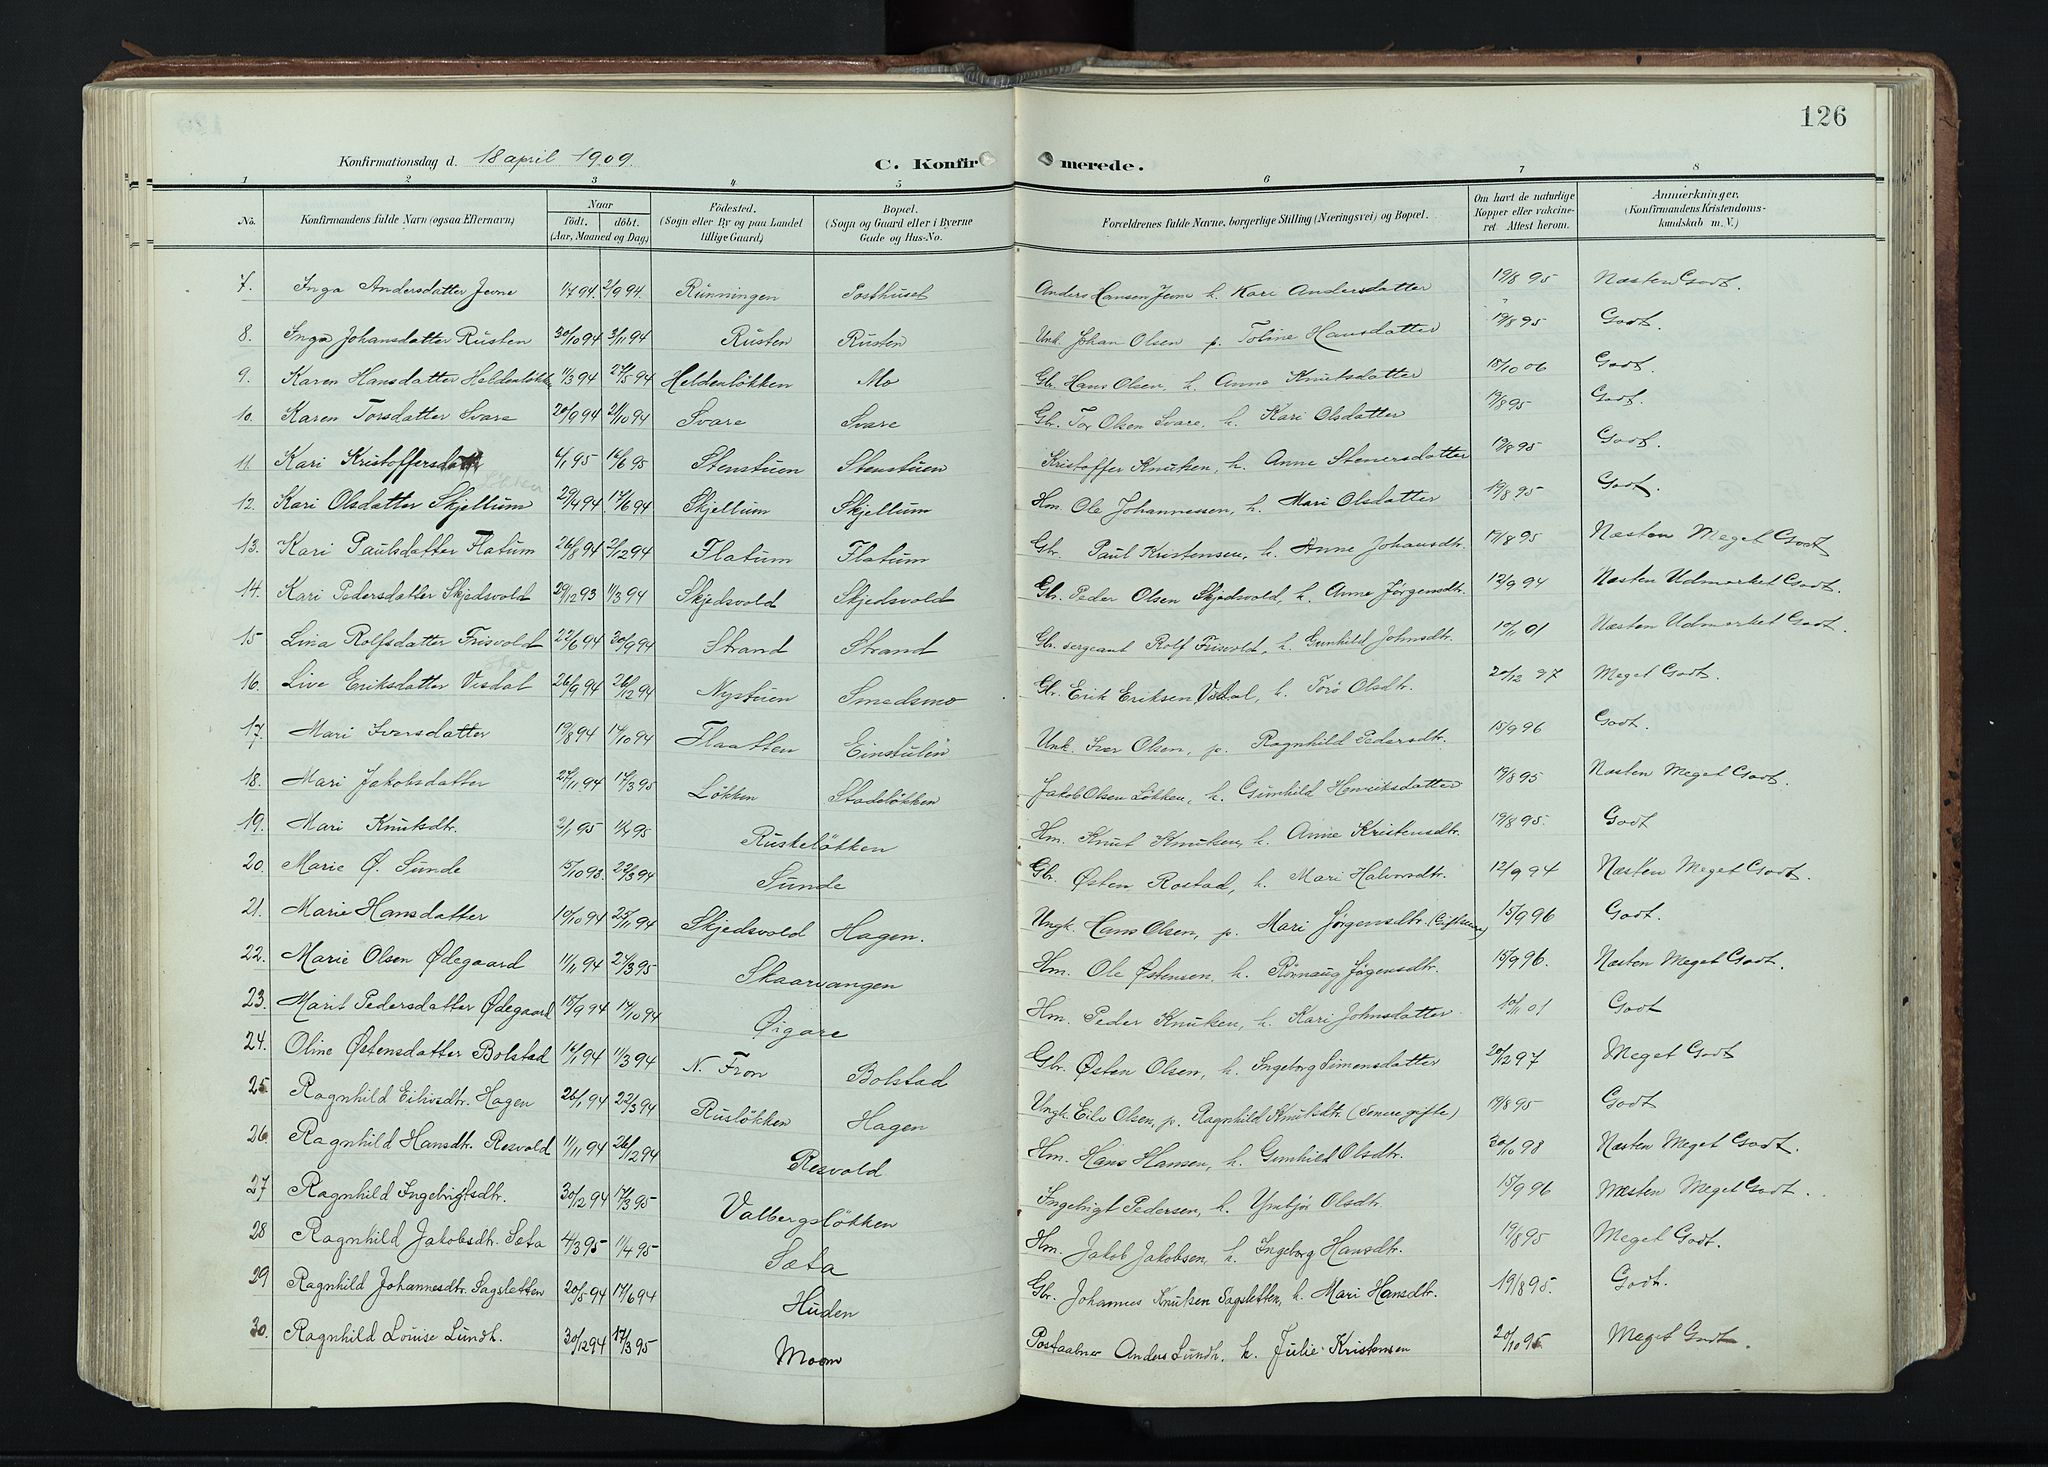 126
Konfirmationsdag d. 18 april 1909.
C. Konfirmerede.
1 2 3 4 5 6 7 8
No. Konfirmandens fulde Navn (ogsaa Efternavn). Naar født. døbt. (Aar, Maaned og Dag) Fødested. (Sogn eller By og paa Landet tillige Gaard) Bopæl. (Sogn og Gaard eller i Byerne Gade og Hus-No. Forældrenes fulde Navne, borgerlige Stilling (Næringsvei) og Bopæl. Om havt de naturlige Kopper eller vakcineret. Attest herom. Anmærkninger. (Konfirmandens Kristendomskundskab m. V.)
7. Inga Andersdatter Jevne 1/7 94. 2/9 94. Runningen Posthuset Anders Hansen Jevne h. Kari Andersdatter 19/8 95 Næsten Godt.
8. Inga Johansdatter Rusten 30/10 94 3/11 94 Rusten Rusten Unk. Johan Olsen p. Toline Hansdatter 19/8 95 Godt.
9. Karen Hansdatter Heldenløkken 11/3 94 27/5 94 Heldenløkken Mo Gbr. Hans Olsen, h. Anne Knutsdatter 18/10 06 Godt.
10. Karen Torsdatter Svare 20/9 94 21/10 94 Svare Svare Gbr. Tor Olsen Svare, h. Kari Olsdatter 19/8 95 Godt.
11. Kari Kristoffersdatter 4/1 95 16/6 95 Stenstuen Stenstuen Kristoffer Knutsen, h. Anne Stenersdatter 19/8 95 Godt.
12. Kari Olsdatter Skjellum 29/4 94. 17/6 94 Skjellum Skjellum Hm. Ole Johannessen, h. Mari Olsdatter 19/8 95 Godt.
13. Kari Paulsdatter Flatum 26/8 94 2/12 94 Flatum Flatum Gbr. Paul Kristensen, h. Anne Johansdtr. 19/8 95 Næsten Meget Godt
14. Kari Pedersdatter Skjedsvold 29/12 93 11/3 94 Skjedsvold Skjedsvold Gbr. Peder Olsen Skjedsvold, h. Anne Jørgensdtr. 12/9 94 Næsten Udmerket Godt.
15 Lina Rolfsdatter Frisvold 22/6 94 30/9 94 Strand Strand Gbr. sergeant Rolf Frisvold, h. Gunhild Johnsdtr. 10/11 01 Næsten Udmerket Godt.
16. Live Eriksdatter Visdal 26/9 94 26/12 94 Nystuen Smedsmo Gbr. Erik Eriksen Visdal, h. Torø Olsdtr. 20/12 97 Meget Godt.
17. Mari Iversdatter 19/8 94 14/10 94 Flaatten Einstulen Unk. Iver Olsen, p. Ragnhild Pedersdtr. 15/9 96 Godt.
18. Mari Jakobsdatter 27/11 94 17/3 95 Løkken Stadeløkken Jakob Olsen Løkken, h. Gunhild Henriksdatter 19/8 95 Næsten Meget Godt.
19. Mari Knutsdtr. 2/1 95 1/4 95 Ruskeløkken Hm. Knut Knutsen, h. Anne Kristensdtr. 19/8 95. Godt
20. Marie Ø. Sunde 15/10 93. 22/3 94 Sunde Gbr. Østen Rostad, h. Mari Halvorsdtr. 12/9 94 Næsten Meget Godt.
21. Marie Hansdatter 10/10 94 25/11 94 Skjedsvold Hagen. Ungk. Hans Olsen, p. Mari Jørgensdtr. 15/9 96 Godt.
22. Marie Olsen Ødegaard 11/11 94 27/3 95 Skaarvangen Hm. Ole Østensen, h. Rønnaug Jørgensdtr. 15/9 96. Næsten Meget Godt.
23. Marit Pedersdatter Ødegaard 15/9 94 17/10 94 Øigare Hm. Peder Knutsen, h. Kari Johnsdatter. 10/11 01 Godt
24. Oline Østensdatter Bolstad 16/1 94 11/3 94 N. Fron Bolstad Gbr. Østen Olsen, h. Ingeborg Simensdatter 20/12 97 Meget Godt
25 Ragnhild Eilivsdtr. Hagen 26/1 94 22/3 94 Rusløkken Hagen Ungk. Eiliv Olsen, p. Ragnhild Knutsdtr. (Senere gifte) 19/8 95 Godt
26. Ragnhild Hansdtr. Resvold 11/11 94 26/12 94 Resvold Hm. Hans Hansen, h. Gunhild Olsdtr. 30/10 98 Næsten Meget Godt.
27 Ragnhild Ingebrigtsdtr. 30/12 94 17/3 95 Valbergsløkken Ingebrigt Pedersen, h. Ymbjør Olsdtr 15/9 96 Næsten Meget Godt.
28 Ragnhild Jakobsdtr. Sæta 4/3 95 11/4 95 Sæta Hm. Jakob Jakobsen, h. Ingeborg Hansdtr. 19/8 95 Meget Godt.
29 Ragnhild Johannesdtr. Sagsletten 20/5 94 17/6 94 Huden Gbr. Johannes Knutsen Sagsletten, h. Mari Hansdtr. 19/8 95 Godt.
30. Ragnhild Louise Lundh. 30/12 94 17/3 95 Moom Postaabner Anders Lundh, h. Julie Kristensen 20/10 95 Meget Godt.